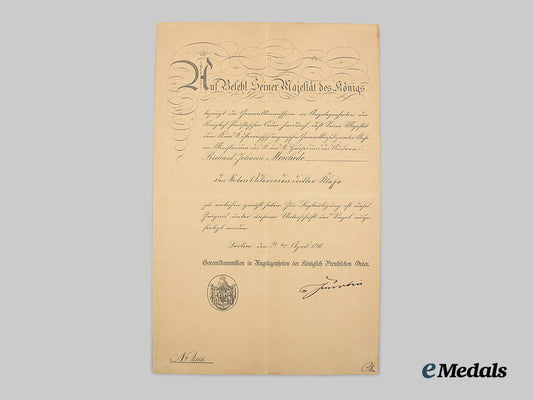 Auf Befehl Seiner Majestät des Königs
bezeugt die Generalkommission in Angelegenheiten der
Königlich Preußischen Orden hierdurch, daß Seine Majestät
dem
im Ministerium des des
Richard Johann Meschede
den Roten Adlerorden dritter Klasse
zu verleihen geruht haben. Zur Beglaubigung ist dieses
Zeugnis unter unserer Unterschrift und Siegel ausge-
fertigt worden.
Berlin, den 9. ten April
Generalkommission in Angelegenheiten der Königlich Preußischen Orden.
No
eMedals